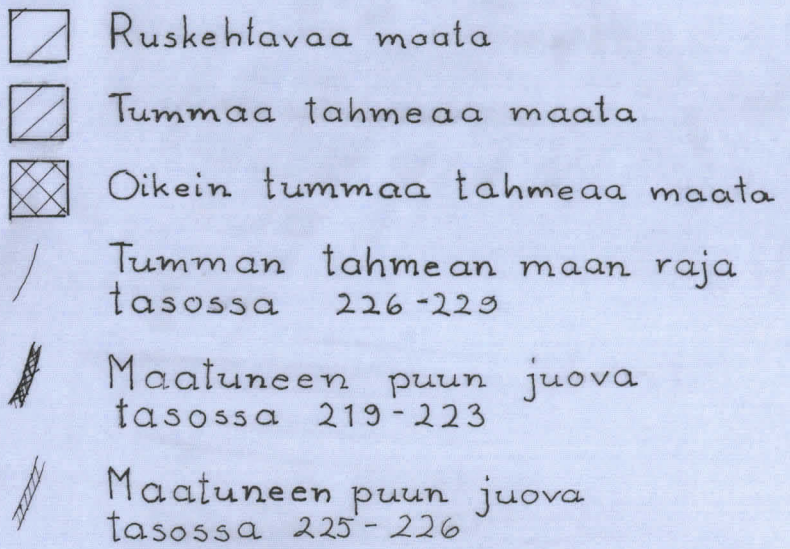 Ruskehtavaa maata
Tummaa tahmeaa maata
Oikein tummaa tahmeaa maata
Tumman tahmean maan raja
tasossa 226-229
Maatuneen puun juova
tasossa 219-223
Maatuneen puun juova
tasossa 225-226